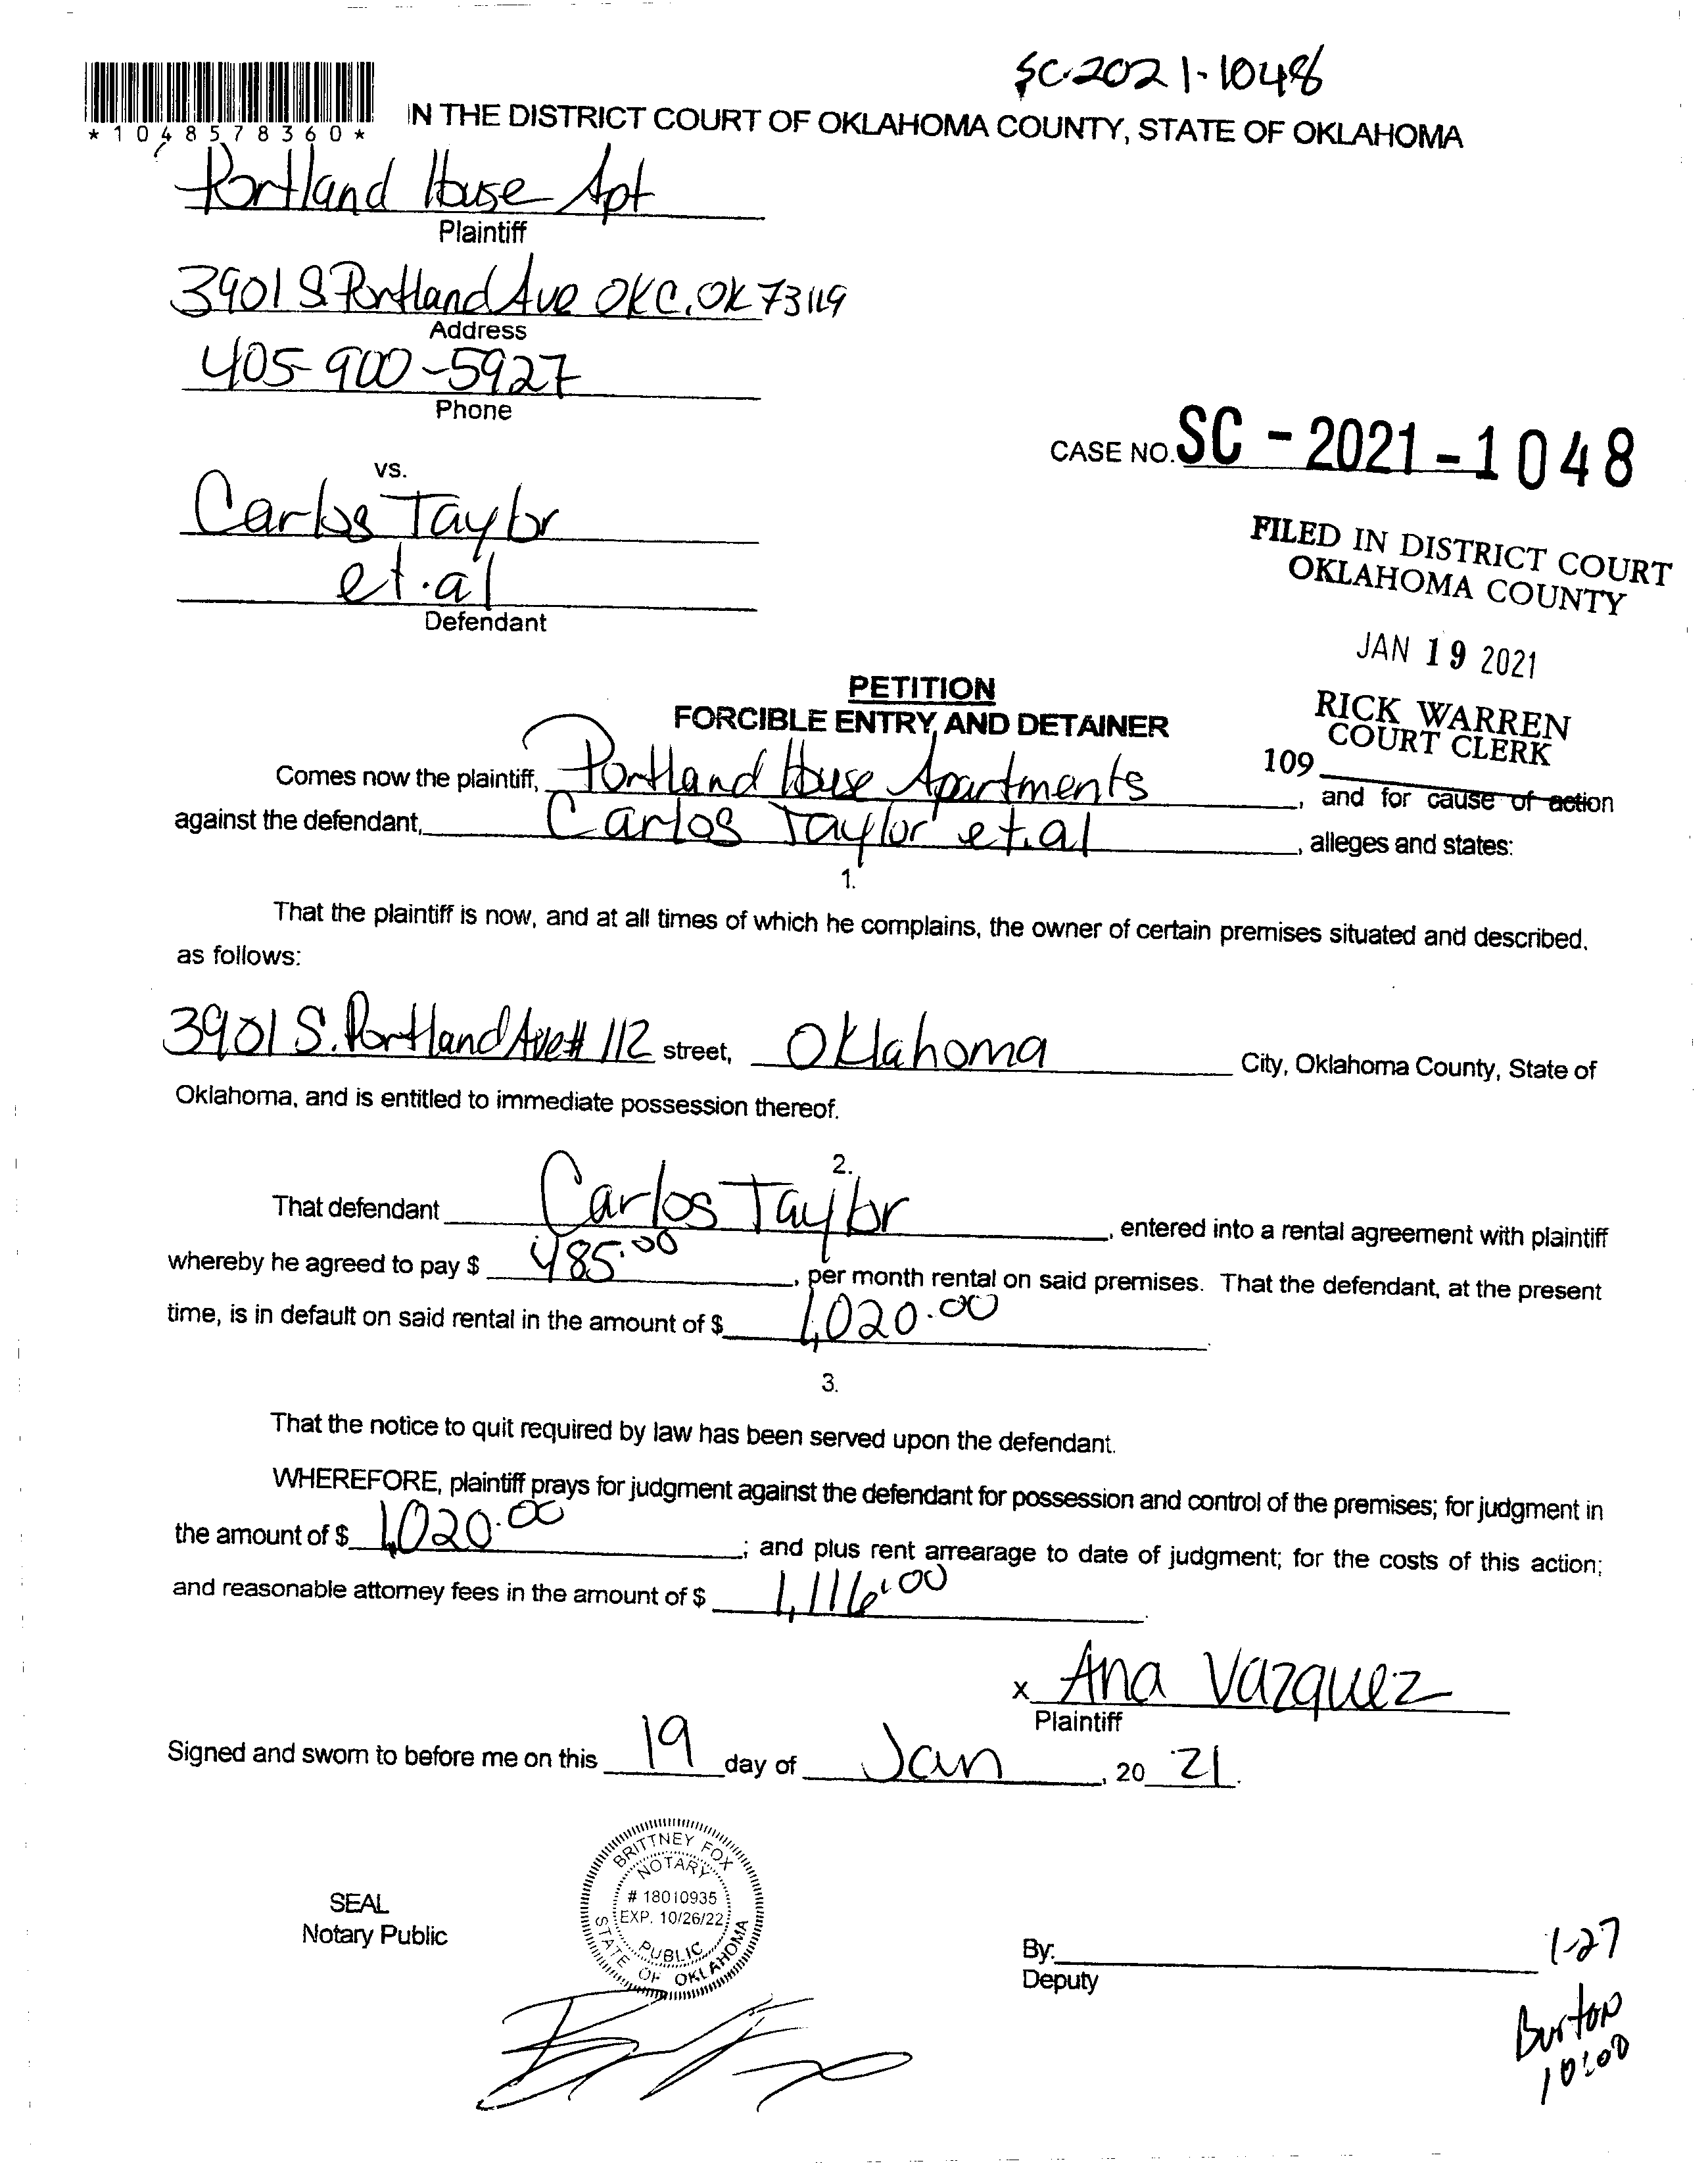 SC-2021-1048
*1048578360*
IN THE DISTRICT COURT OF OKLAHOMA COUNTY, STATE OF OKLAHOMA
Portland House Apt
Plaintiff
3901 S Portland Ave OKC, OK 73119
Address
405-900-5927
Phone
CASE NO. SC-2021-1048
vs.
Carlos Taylor
et.al
Defendant
FILED IN DISTRICT COURT
OKLAHOMA COUNTY
JAN 19 2021
RICK WARREN
COURT CLERK
109
PETITION
FORCIBLE ENTRY AND DETAINER
Comes now the plaintiff, Portland House Apartments, and for cause of action
against the defendant, Carlos Taylor et.al, alleges and states:
1.
That the plaintiff is now, and at all times of which he complains, the owner of certain premises situated and described.
as follows:
3901 S. Portland Ave # 112 street, Oklahoma City, Oklahoma County, State of
Oklahoma, and is entitled to immediate possession thereof.
2.
That defendant Carlos Taylor, entered into a rental agreement with plaintiff
whereby he agreed to pay $ 485.00, per month rental on said premises. That the defendant, at the present
time, is in default on said rental in the amount of $ 1,020.00.
3.
That the notice to quit required by law has been served upon the defendant.
WHEREFORE, plaintiff prays for judgment against the defendant for possession and control of the premises; for judgment in
the amount of $ 1,020.00; and plus rent arrearage to date of judgment; for the costs of this action;
and reasonable attorney fees in the amount of $ 1,116.00.
x Ana Vazquez
Plaintiff
Signed and sworn to before me on this 19 day of Jan, 20 21.
BRITTNEY FOX
NOTARY
# 18010935
EXP. 10/26/22
PUBLIC
STATE OF OKLAHOMA
SEAL
Notary Public
By:
Deputy
1-27
Burton
10:00